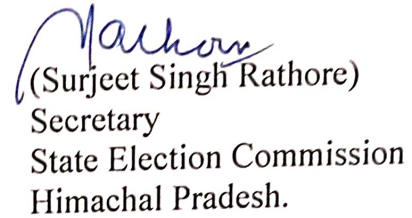 Rathore
(Surjeet Singh Rathore)
Secretary
State Election Commission
Himachal Pradesh.